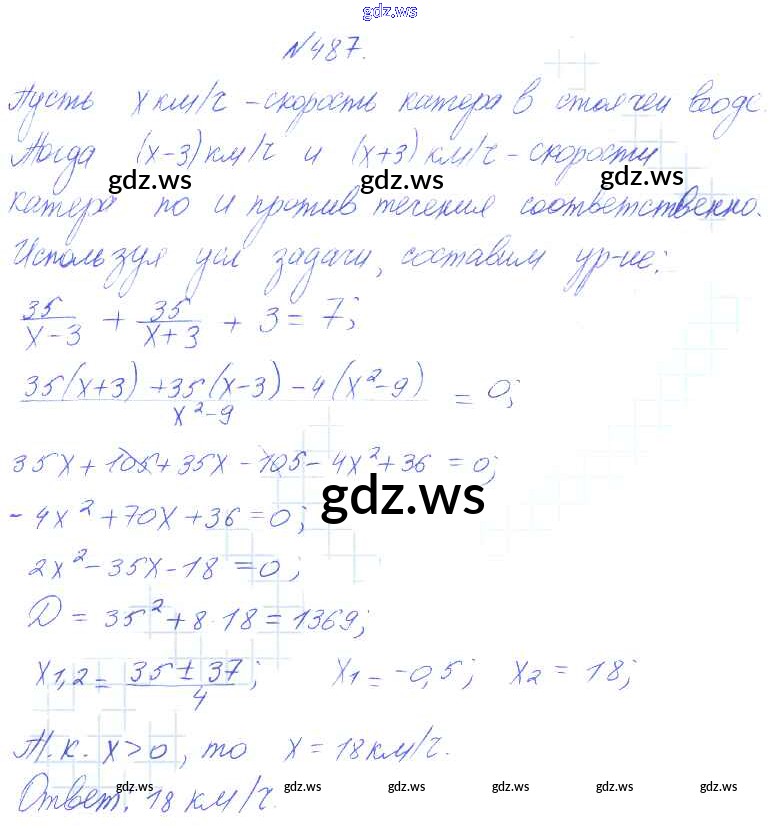 gdz.ws
№487.
Пусть x км/ч - скорость катера в стоячей воде.
Тогда (x-3) км/ч и (x+3) км/ч - скорости
gdz.ws gdz.ws gdz.ws
катера по и против течения соответственно.
Используя усл задачи, составим ур-ие:
35/(x-3) + 35/(x+3) + 3 = 7;
(35(x+3) + 35(x-3) - 4(x²-9))/(x²-9) = 0;
35x + 105 + 35x - 105 - 4x² + 36 = 0;
gdz.ws
-4x² + 70x + 36 = 0;
2x² - 35x - 18 = 0;
D = 35² + 8·18 = 1369;
x1,2 = (35 ± 37)/4; x1 = -0,5; x2 = 18;
Т.к. x > 0, то x = 18 км/ч.
gdz.ws gdz.ws gdz.ws gdz.ws gdz.ws
Ответ: 18 км/ч.